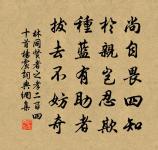 尚自畏四知
於親豈忍欺
種藍有助者
拔去不妨奇
林同賢者之孝二百四
十首楊震詞典網集